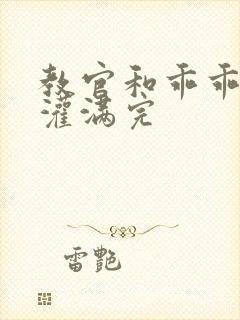 教官和乖乖
灌满完
雷艷